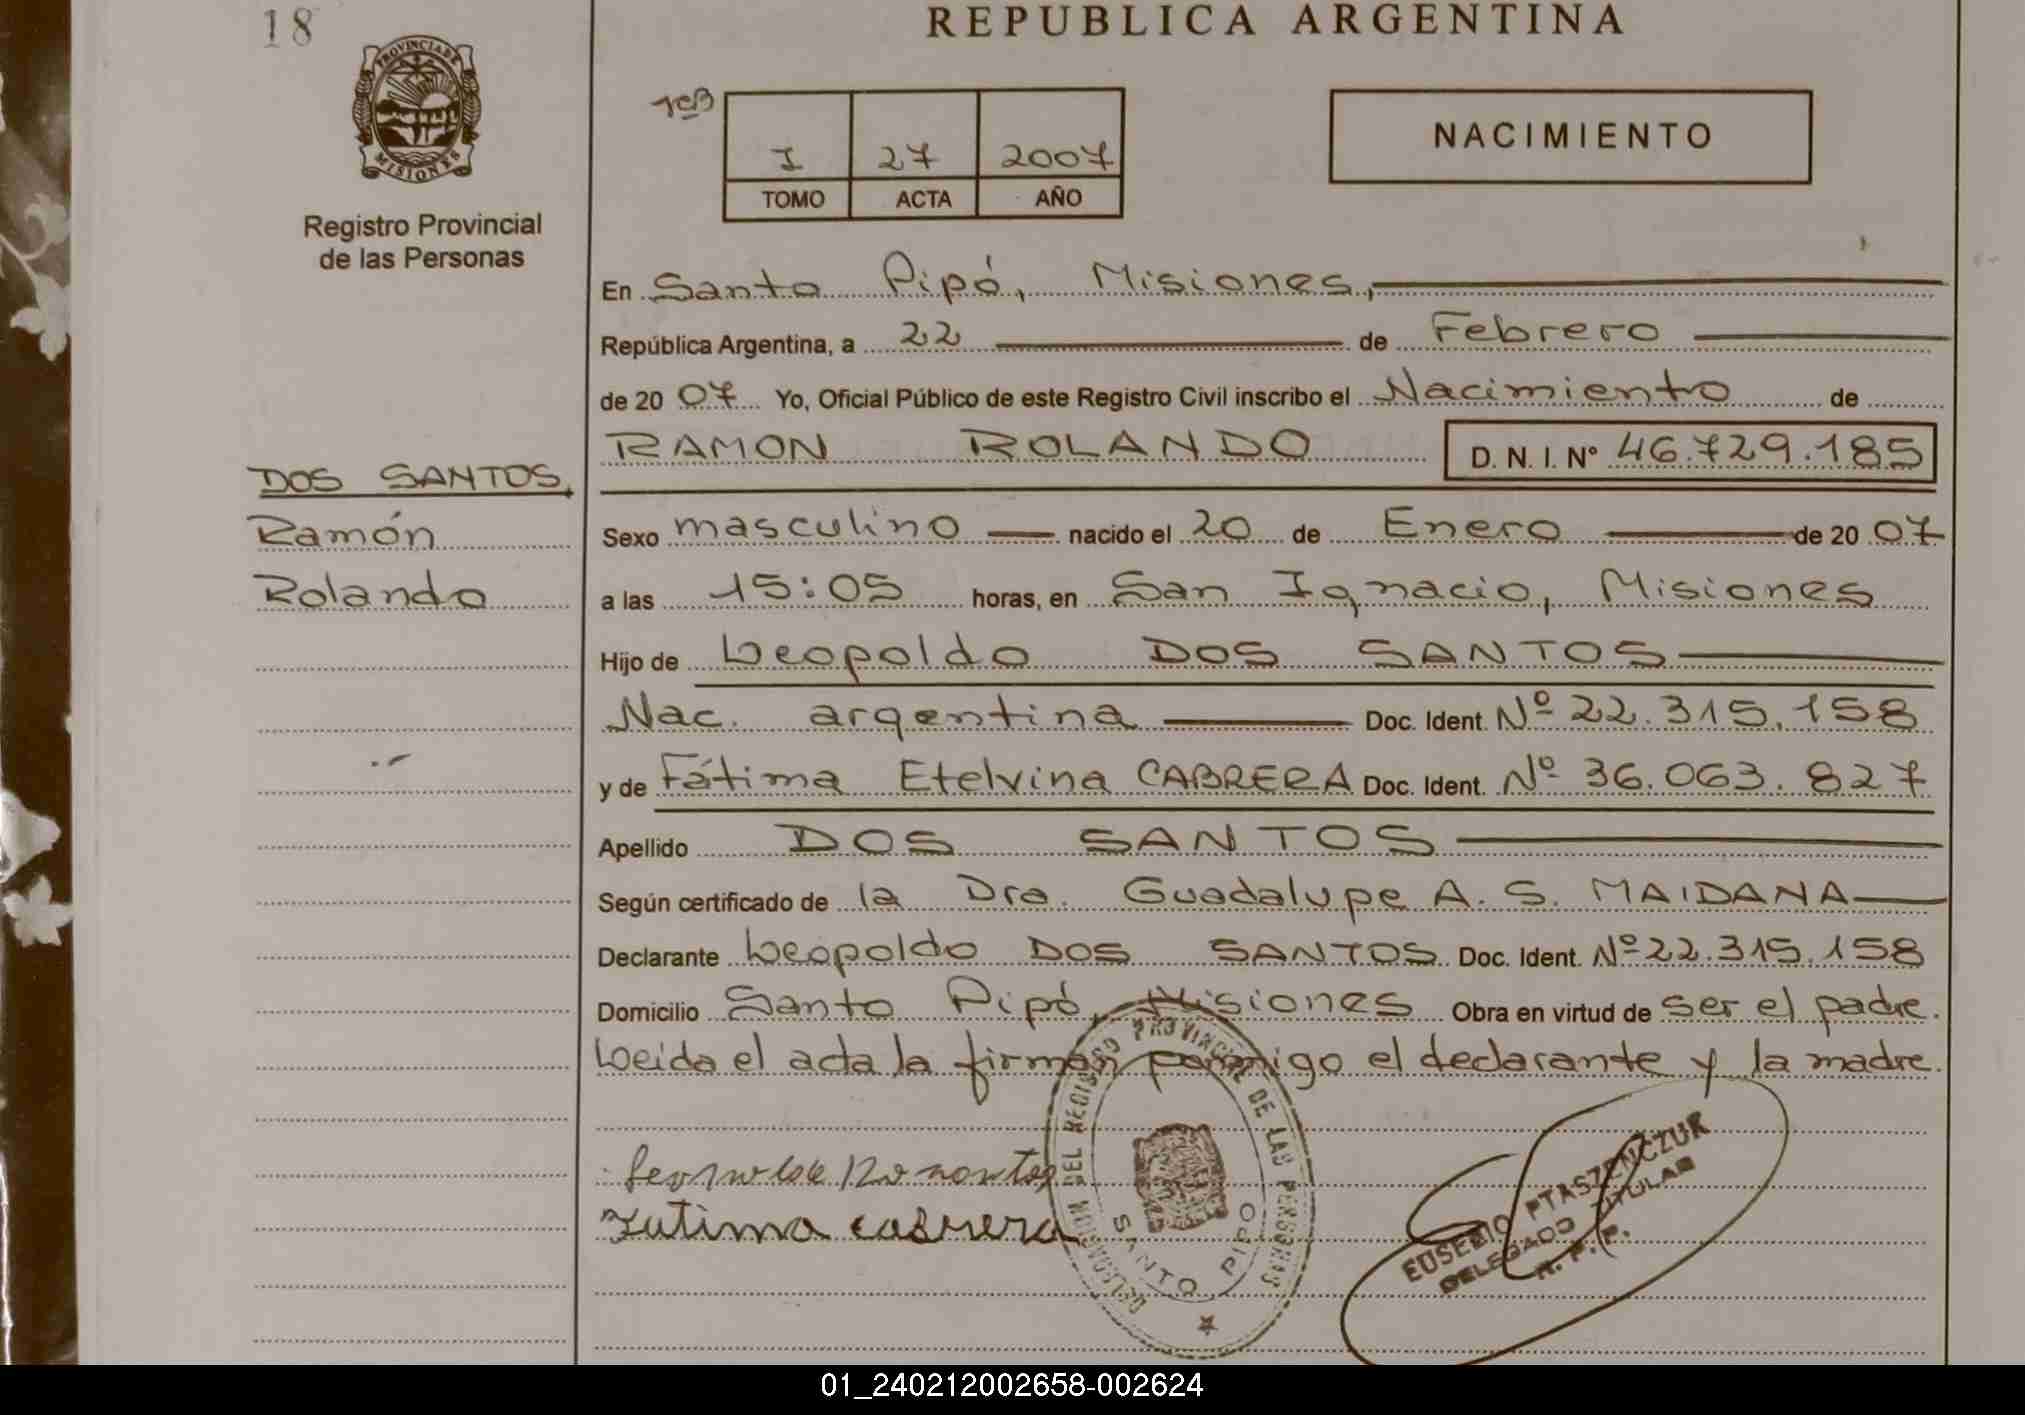 18
REPUBLICA ARGENTINA
PROVINCIA DE MISIONES
Registro Provincial
de las Personas
I 27 2007
TOMO ACTA AÑO
NACIMIENTO
En Santo Pipó, Misiones,
República Argentina, a 22 de Febrero
de 20 07 Yo, Oficial Público de este Registro Civil inscribo el Nacimiento de
RAMON ROLANDO D. N. I. Nº 46.729.185
DOS SANTOS,
Ramón
Rolando
Sexo masculino nacido el 20 de Enero de 20 07
a las 15:05 horas, en San Ignacio, Misiones
Hijo de Leopoldo DOS SANTOS
Nac. argentina Doc. Ident. Nº 22.315.158
y de Fátima Etelvina CABRERA Doc. Ident. Nº 36.063.827
Apellido DOS SANTOS
Según certificado de la Dra. Guadalupe A. S. MAIDANA
Declarante Leopoldo DOS SANTOS Doc. Ident. Nº 22.315.158
Domicilio Santo Pipó, Misiones Obra en virtud de ser el padre.
Leida el acta la firman conmigo el declarante y la madre.
Fatima cabrera
DELEGACION DEL REGISTRO PROVINCIAL DE LAS PERSONAS
SANTO PIPO
EUSEBIO PTASZENCZUK
DELEGADO TITULAR
R. P. P.
01_240212002658-002624